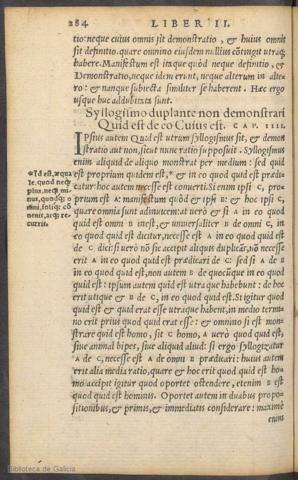 284 LIBER II.
tio: neque cuius omnis sit demonstratio, & huius omnis
sit definitio. quare omnino eiusdem nullius cõtingit utraq;
habere. Manifestum est inquam quòd neque definitio, &
Demonstratio, neque idem erunt, neque alterum in alte-
ro: & nanque subiecta similiter se haberent. Hæc ergo
usque huc addubitata sunt.
Syllogismo
non demonstrari
Quid est de eo Cuius est. CAP. IIII.
Ipsius autem Quid est utrum syllogismus sit, & demon
stratio aut non, sicut nunc ratio supposuit. Syllogismus
enim aliquid de aliquo monstrat per medium: sed quid
est proprium quidem est,* & in eo quod quid est prædi-
catur: hoc autem necesse est conuerti. Si enim ipsi C, pro-
prium est A: manifestum quòd & ipsi B: & hoc ipsi C,
quare omnia sunt adinuicem: at uerò & si A in eo quod
quid est omni B inest, & uniuersaliter B de omni C, in
eo quod quid est dicitur, necesse est A in eo quod quid est
de C dici: si uerò nõ sic accipit aliquis
nõ necesse
erit A in eo quod quid est prædicari de C: sed si A de B
in eo quod quid est, non autem de
B in eo quod quid
est: ipsum autem quid est utraque habebunt: de hoc
erit utique & B de C, in eo quod quid est. Si igitur quod
quid est & quid erat esse utraque habent, in medio termi-
no erit prius quod quid erat esse: & omnino si est mon-
strare quid est homo, sit C homo, A uerò quod quid est,
siue animal bipes, siue aliquid aliud: si ergo syllogizatur
A de C, necesse est A de omni B prædicari: huius autem
erit alia media ratio, quare & hoc erit quod quid est ho-
mo: accipit igitur quod oportet ostendere, etenim B est
quod quid est hominis. Oportet autem in duabus propo-
sitionibus, & primis, & immediatis considerare: maximè
enim
*Id est, æqua
le, quod neq;
plus, neq; mi-
nus,
omni, soliq; cõ
uenit, atq; re-
currit.
Biblioteca de Galicia